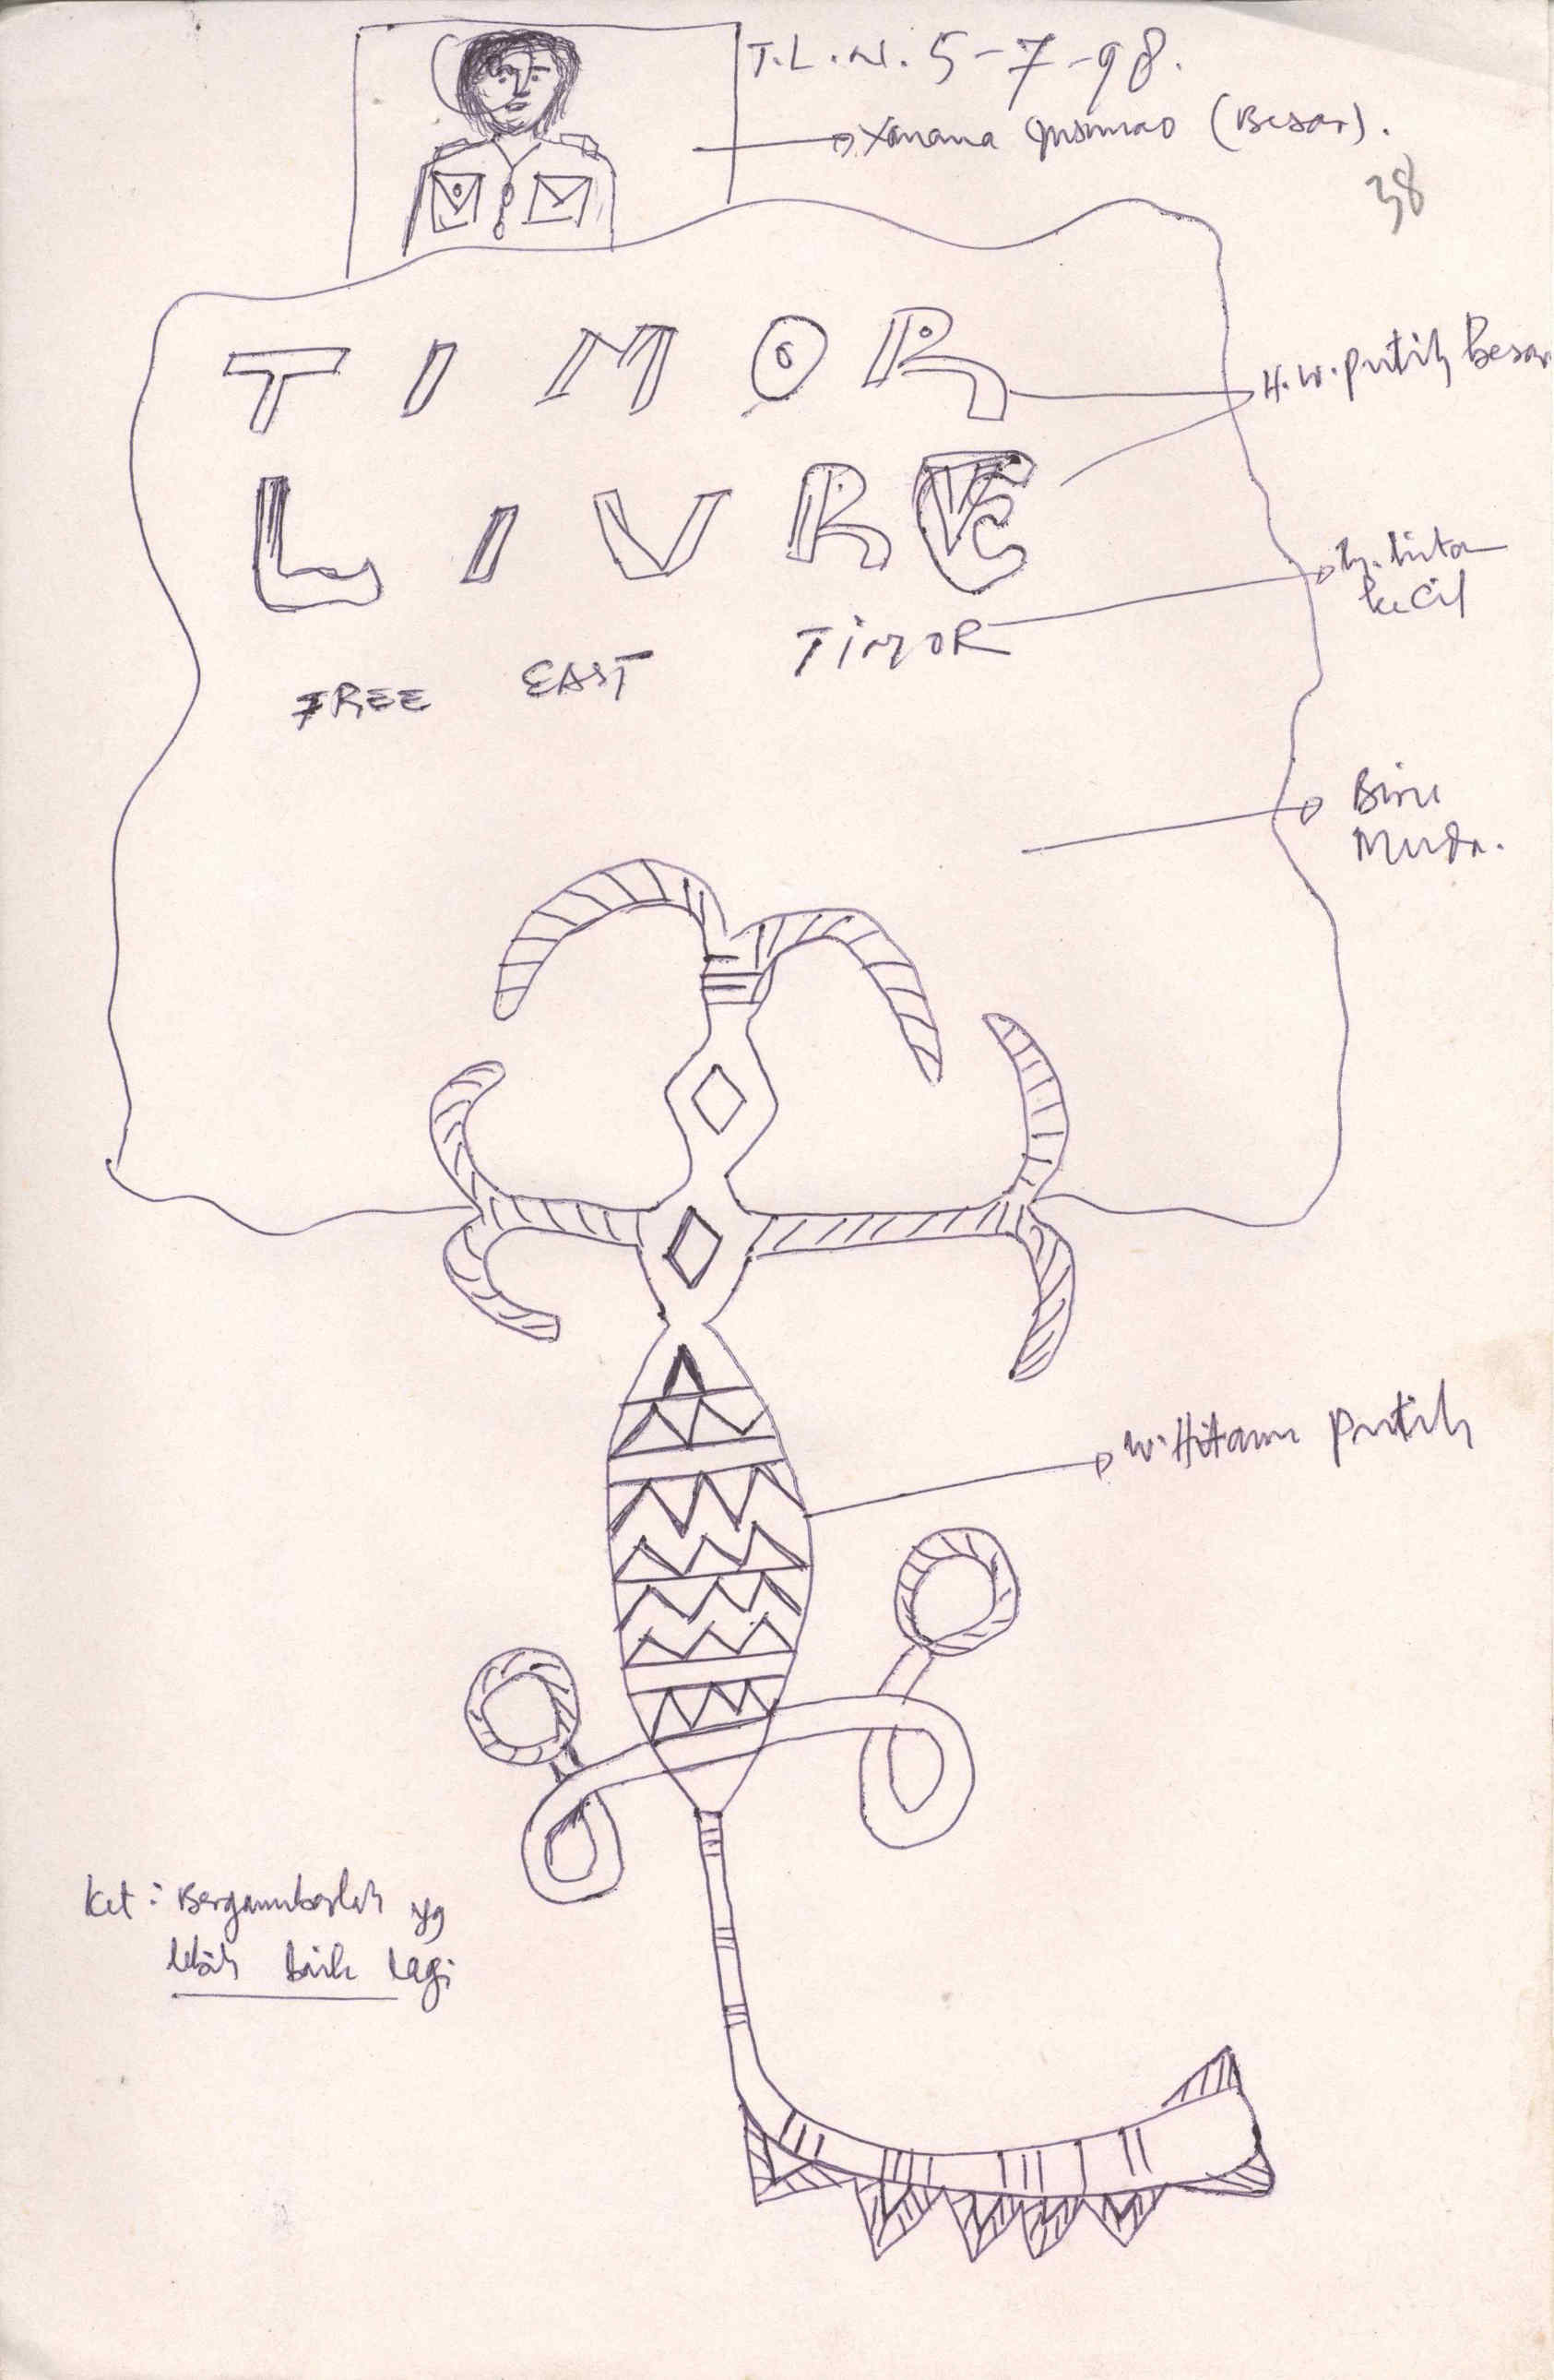 T.L.N. 5-7-98.
Xanana Gusmao (Besar).
38
TIMOR
H.W. putih besar
LIVRE
kecil
TIMOR
FREE EAST
Biru
Muda.
W. Hitam putih
Ket: Bergambarlah yg
lebih baik lagi